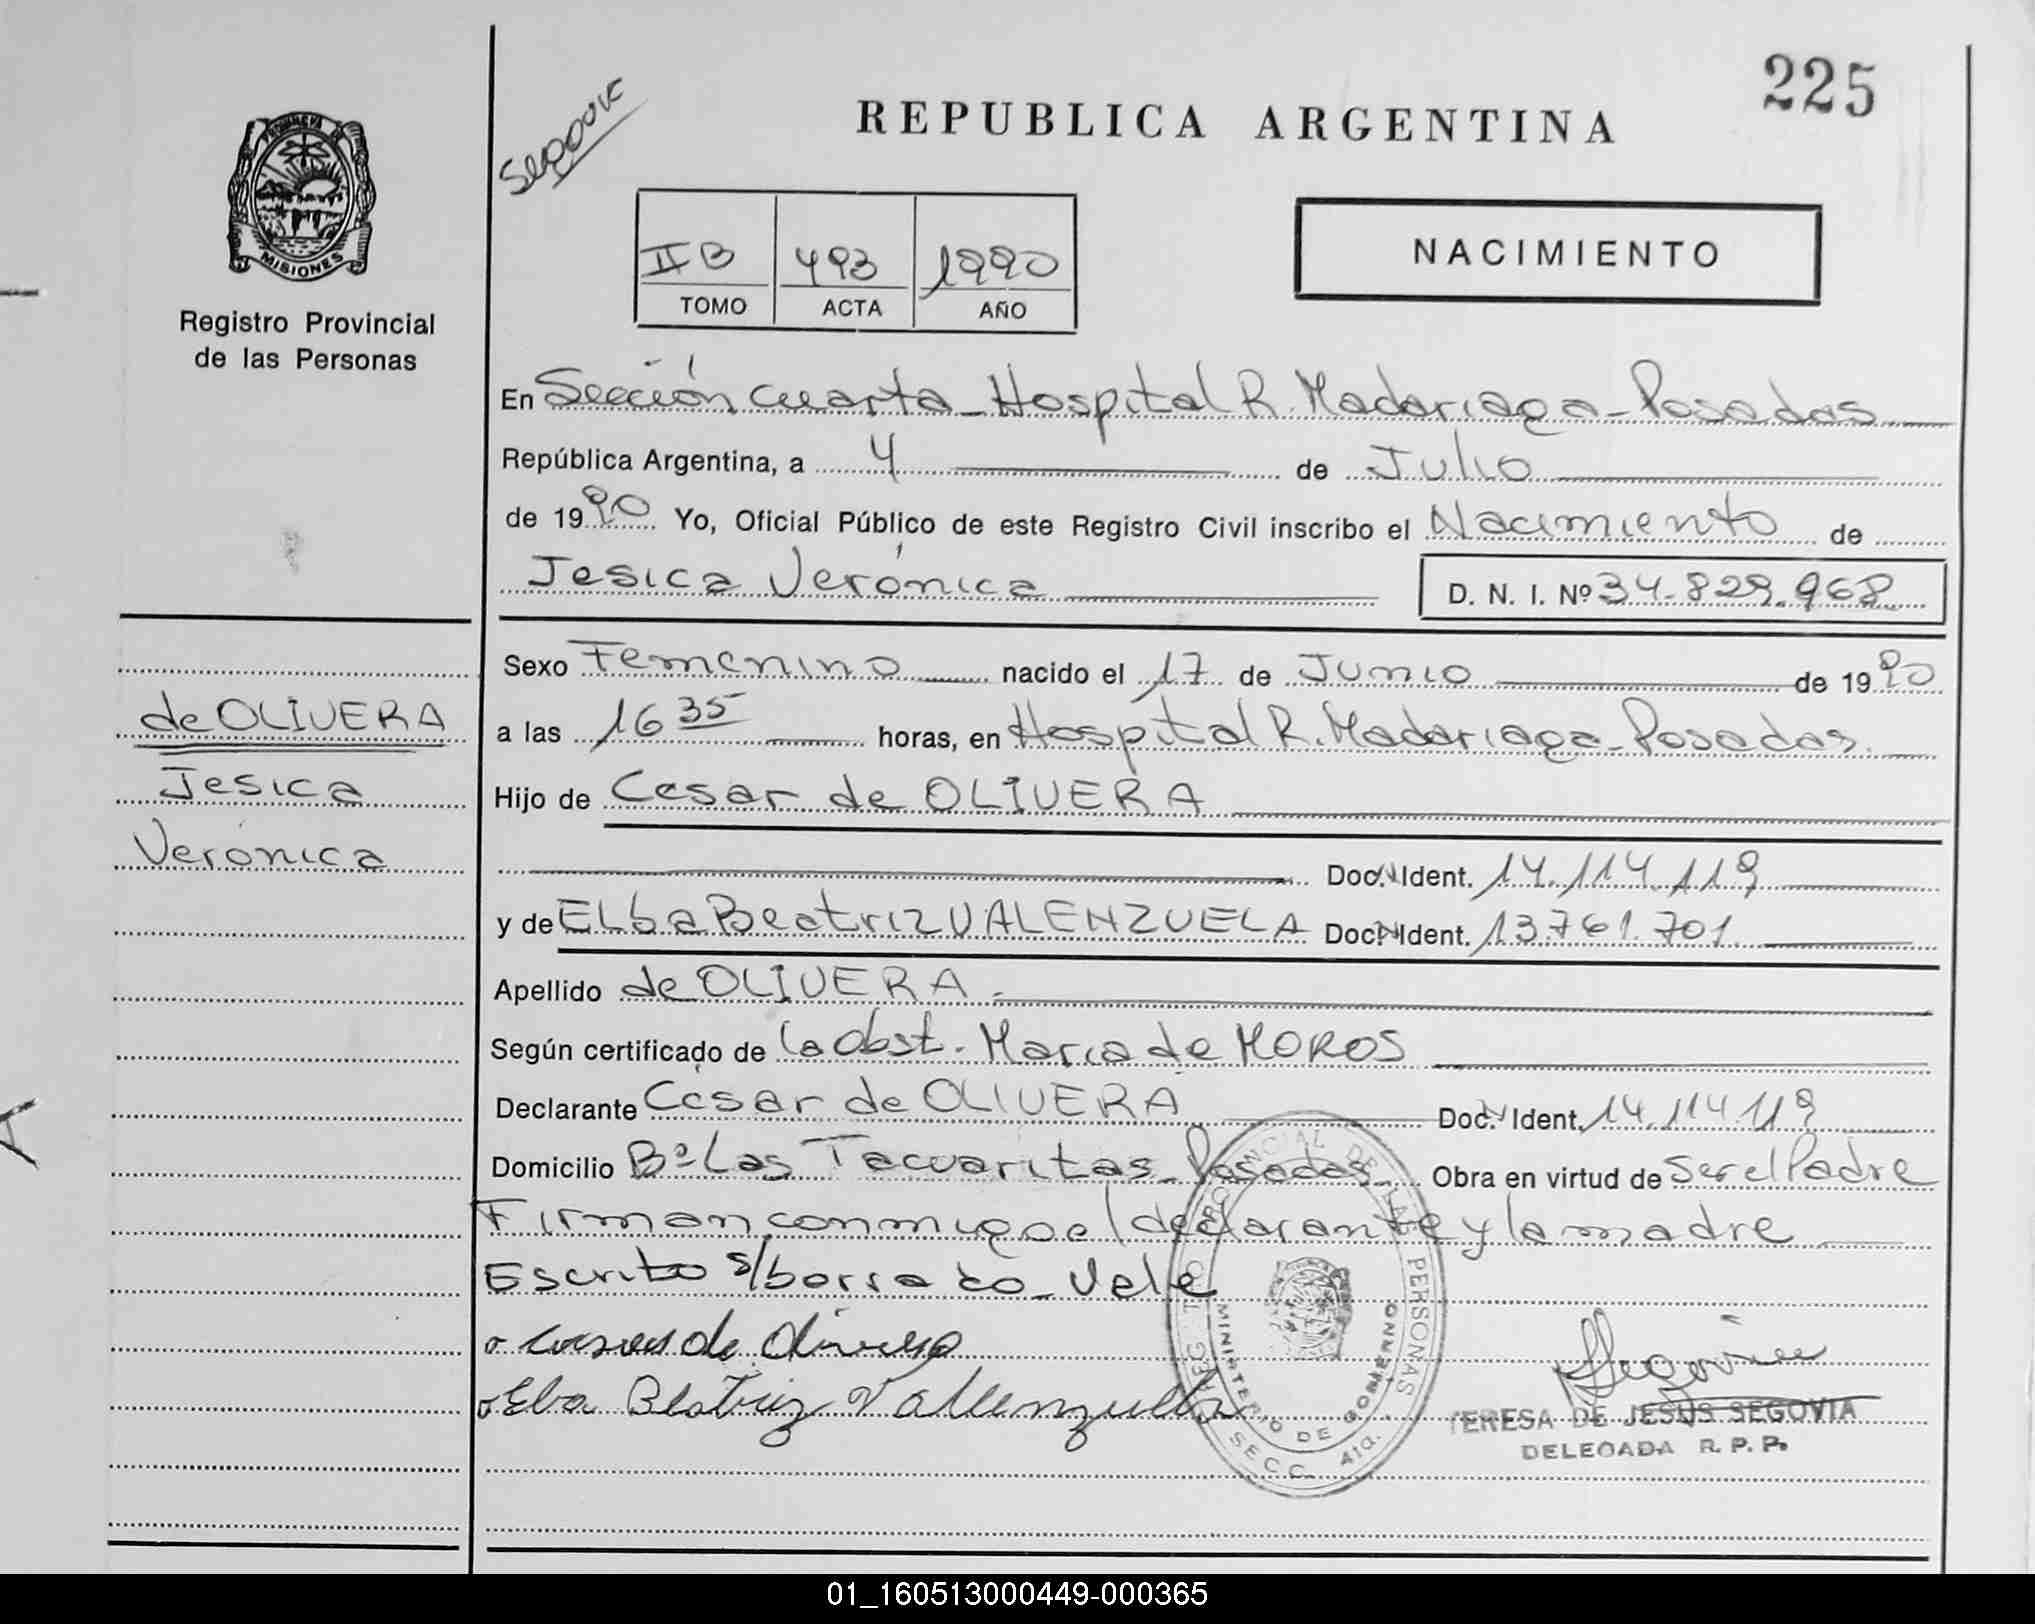 225
REPUBLICA ARGENTINA
NUEVA
MISIONES
Registro Provincial
de las Personas
II B 493 1990
TOMO ACTA AÑO
NACIMIENTO
En Sección Cuarta - Hospital R. Madariaga - Posadas
República Argentina, a 4 de Julio
de 1990 Yo, Oficial Público de este Registro Civil inscribo el Nacimiento de
Jesica Verónica D. N. I. Nº 34.829.968
Sexo Femenino nacido el 17 de Junio de 1990
a las 16 35 horas, en Hospital R. Madariaga - Posadas.
Hijo de Cesar de OLIVERA
Doc. Ident. 14.114.119
y de Elba Beatriz VALENZUELA Doc. Ident. 13.761.701
Apellido de OLIVERA.
Según certificado de la Obst. Maria de MOROS
Declarante César de OLIVERA Doc. Ident. 14.114.119
Domicilio Bº Las Tacuaritas - Posadas Obra en virtud de Ser el Padre
Firman conmigo el declarante y la madre
Escrito s/borrado - Vale
de Olivera
Elba Beatriz Vallenzuella
de OLIVERA
Jesica
Verónica
REG. PROVINCIAL DE LAS PERSONAS
MINISTERIO DE GOBIERNO
SECC. 4ta.
Segovia
TERESA DE JESUS SEGOVIA
DELEGADA R. P. P.
01_160513000449-000365